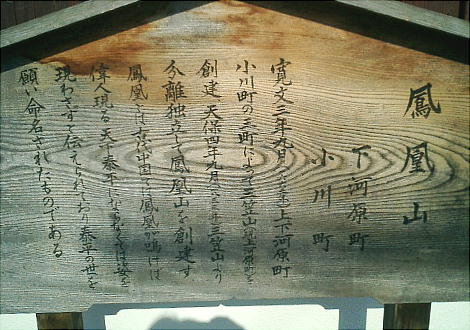 鳳凰山
下河原町
小川町
寛文二年九月 上下河原町
小川町の三町によって三笠山
創建 天保四年九月 三笠山より
分離独立して鳳凰山を創建す
鳳凰とは古代中国で鳳凰が鳴けば
偉人現る天下泰平にならなくては姿を
現わさずと伝えられており泰平の世を
願い命名されたものである